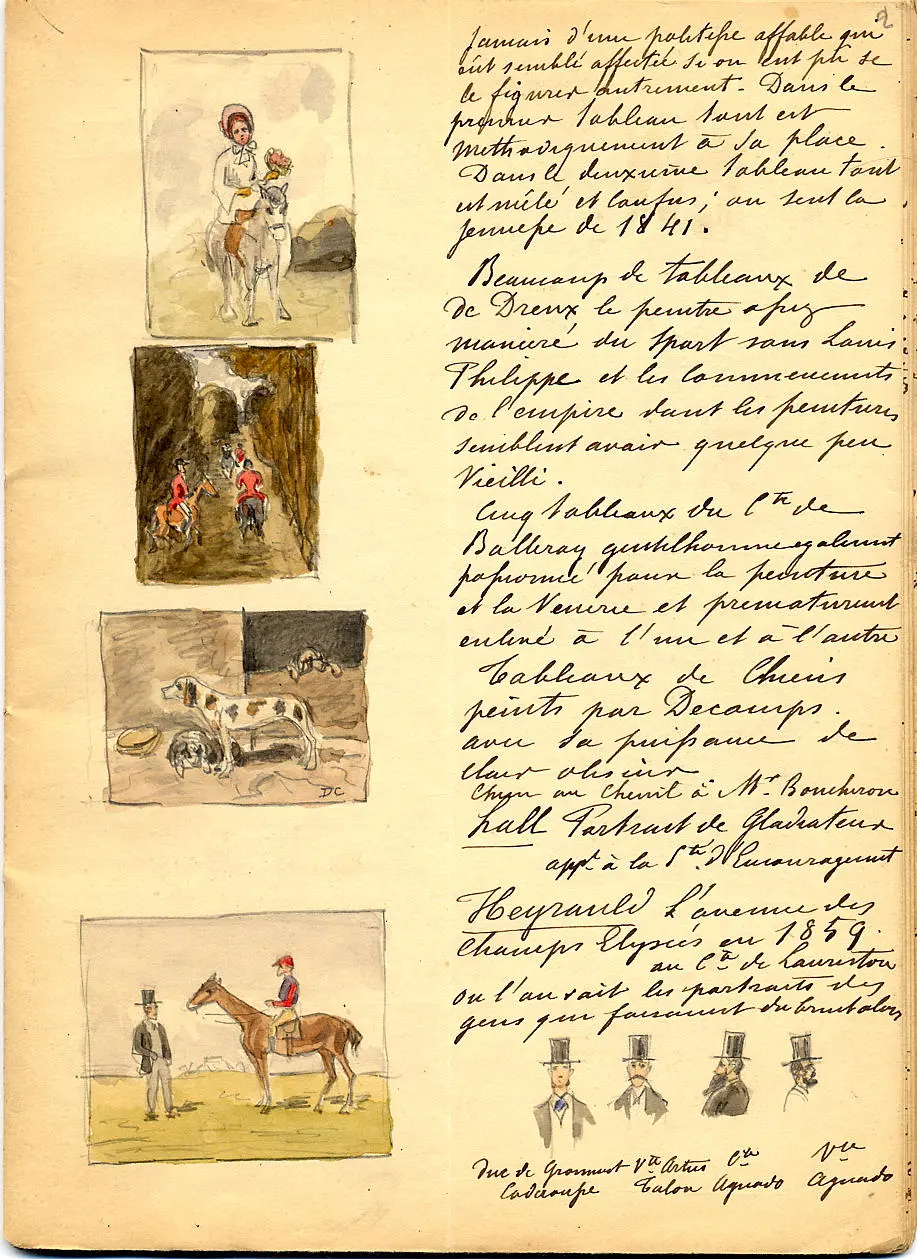 2
jamais d'une politesse affable qui
eût semblé affectée si on eut pu se
le figurer autrement - Dans le
premier tableau tout est
methodiquement à sa place.
Dans le deuxieme tableau tout
est mêlé et confus ; on sent la
jeunesse de 1841.
Beaucoup de tableaux de
de Dreux le peintre assez
maniéré du sport sous Louis
Philippe et les commencements
de l'empire dont les peintures
semblent avoir quelque peu
Vieilli.
Cinq tableaux du Cte de
Balleroy gentilhomme egalement
passionné pour la peinture
et la Venerie et prematurement
enlevé à l'un et à l'autre
Tableaux de Chiens
peints par Decamps.
avec sa puissance de
clair obscur
Chien au Chenil à Mr. Boucheron
DC
Lall Portrait de Gladiateur
appt à la Sté d'Encouragement
Heyrauld L'avenue des
Champs Elysées en 1859.
au Cte de Lauriston
ou l'on voit les portraits des
gens qui faisaient du bruit alors
duc de Grammont Vte Artus Cte Vte
Caderousse Talon Aguado Aguado